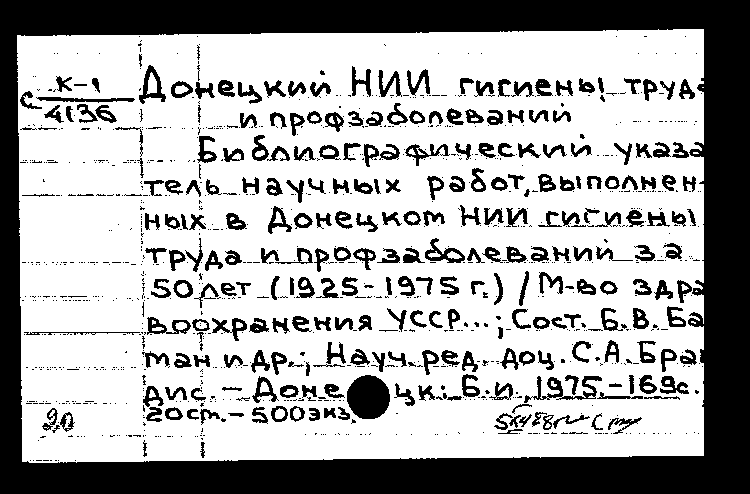 К-1
С 4136
Донецкий НИИ гигиены труда
и профзаболеваний
Библиографический указа
тель научных работ, выполнен-
ных в Донецком НИИ гигиены
труда и профзаболеваний за
50 лет (1925-1975 г.) / М-во здра
воохранения УССР...; Сост. Б.В. Ба
ман и др.; Науч. ред. доц. С.А. Бра
дис. – Донецк: Б.и, 1975.-169с.
20 см. – 500 экз.
20